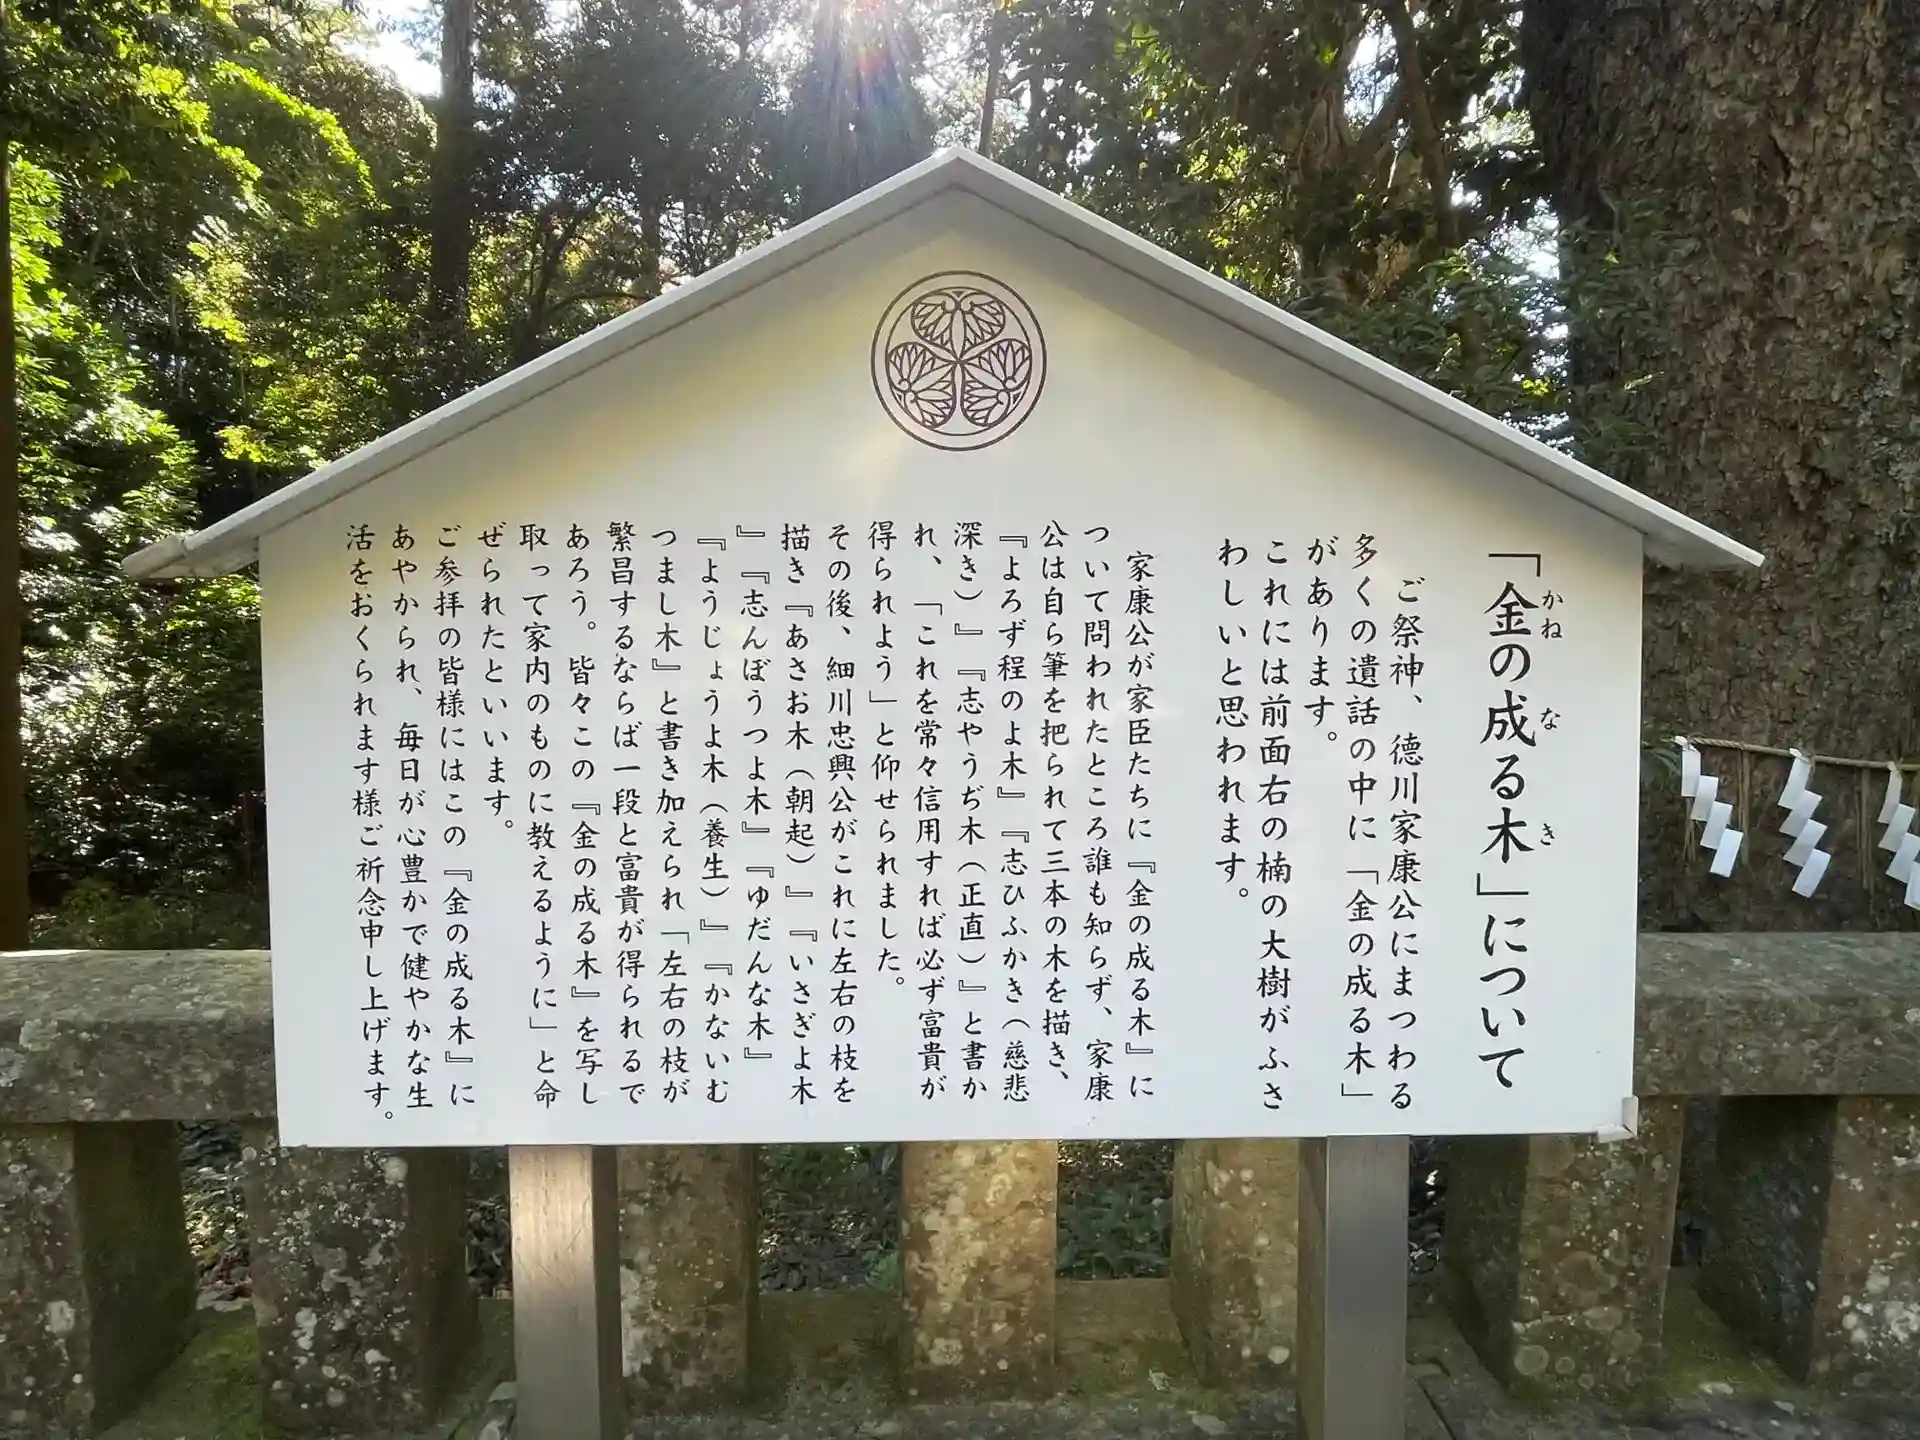 「金の成る木」について
かね な き
ご祭神、徳川家康公にまつわる
多くの遺話の中に「金の成る木」
があります。
これには前面右の楠の大樹がふさ
わしいと思われます。
家康公が家臣たちに『金の成る木』に
ついて問われたところ誰も知らず、家康
公は自ら筆を把られて三本の木を描き、
『よろず程のよ木』『志ひふかき（慈悲
深き）』『志やうぢ木（正直）』と書か
れ、「これを常々信用すれば必ず富貴が
得られよう」と仰せられました。
その後、細川忠興公がこれに左右の枝を
描き『あさお木（朝起）』『いさぎよ木
』『志んぼうつよ木』『ゆだんな木』
『ようじょうよ木（養生）』『かないむ
つまし木』と書き加えられ「左右の枝が
繁昌するならば一段と富貴が得られるで
あろう。皆々この『金の成る木』を写し
取って家内のものに教えるように」と命
ぜられたといいます。
ご参拝の皆様にはこの『金の成る木』に
あやかられ、毎日が心豊かで健やかな生
活をおくられます様ご祈念申し上げます。